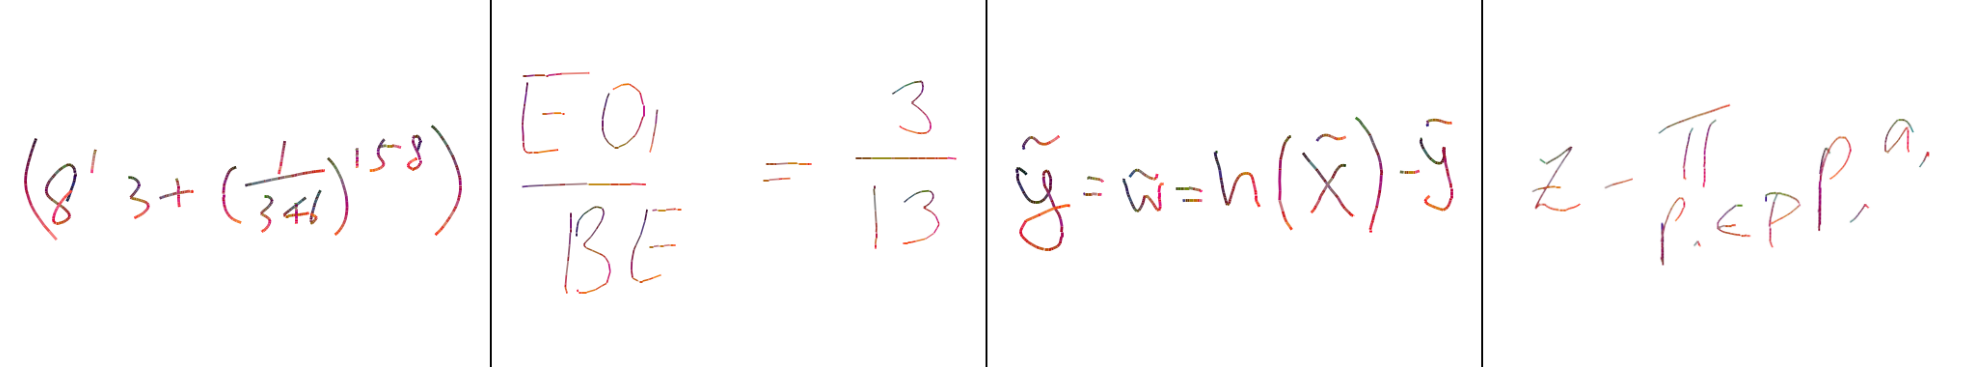 (8' 3 + (1/346)^158)
EO₁/BE = 3/13
ỹ = w̃ = h(x̃) - ỹ
z - ∏_{p_i ∈ P} p_i^{a_i}